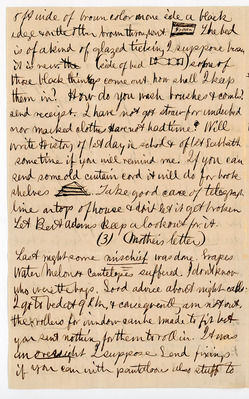 side of brown color one side a black
edge on the other brown throughout. The bed
is of a kind of glazed ticking I suppose
it is side of bed some of
those black things come out. how shall I keep
them in? How do you wash brushes & combs?
send receipt. I have not got straw for underbed
nor marked clothes. Have not had time. Will
write history of 1st day in school & of 1st Sabbath
sometime if you will remind me. If you can
send some old curtain cord it will do for book
shelves Take good care of telegraph
line on top of house & don't let it get broken
Let Bert Adams keep a lookout for it.
(3) (Mother's letter)
Last night some mischief was done. Grapes
Water Melons & Cantelopes suffered. I don't know
who were the boys. Good advice about night
I go to bed at 9 P.M. & consequently am not out.
the rollers for window can be made to fix but
you sent nothing for them to roll in. It was
an oversight I suppose. Send fixings
if you can with pantaloon stuff to